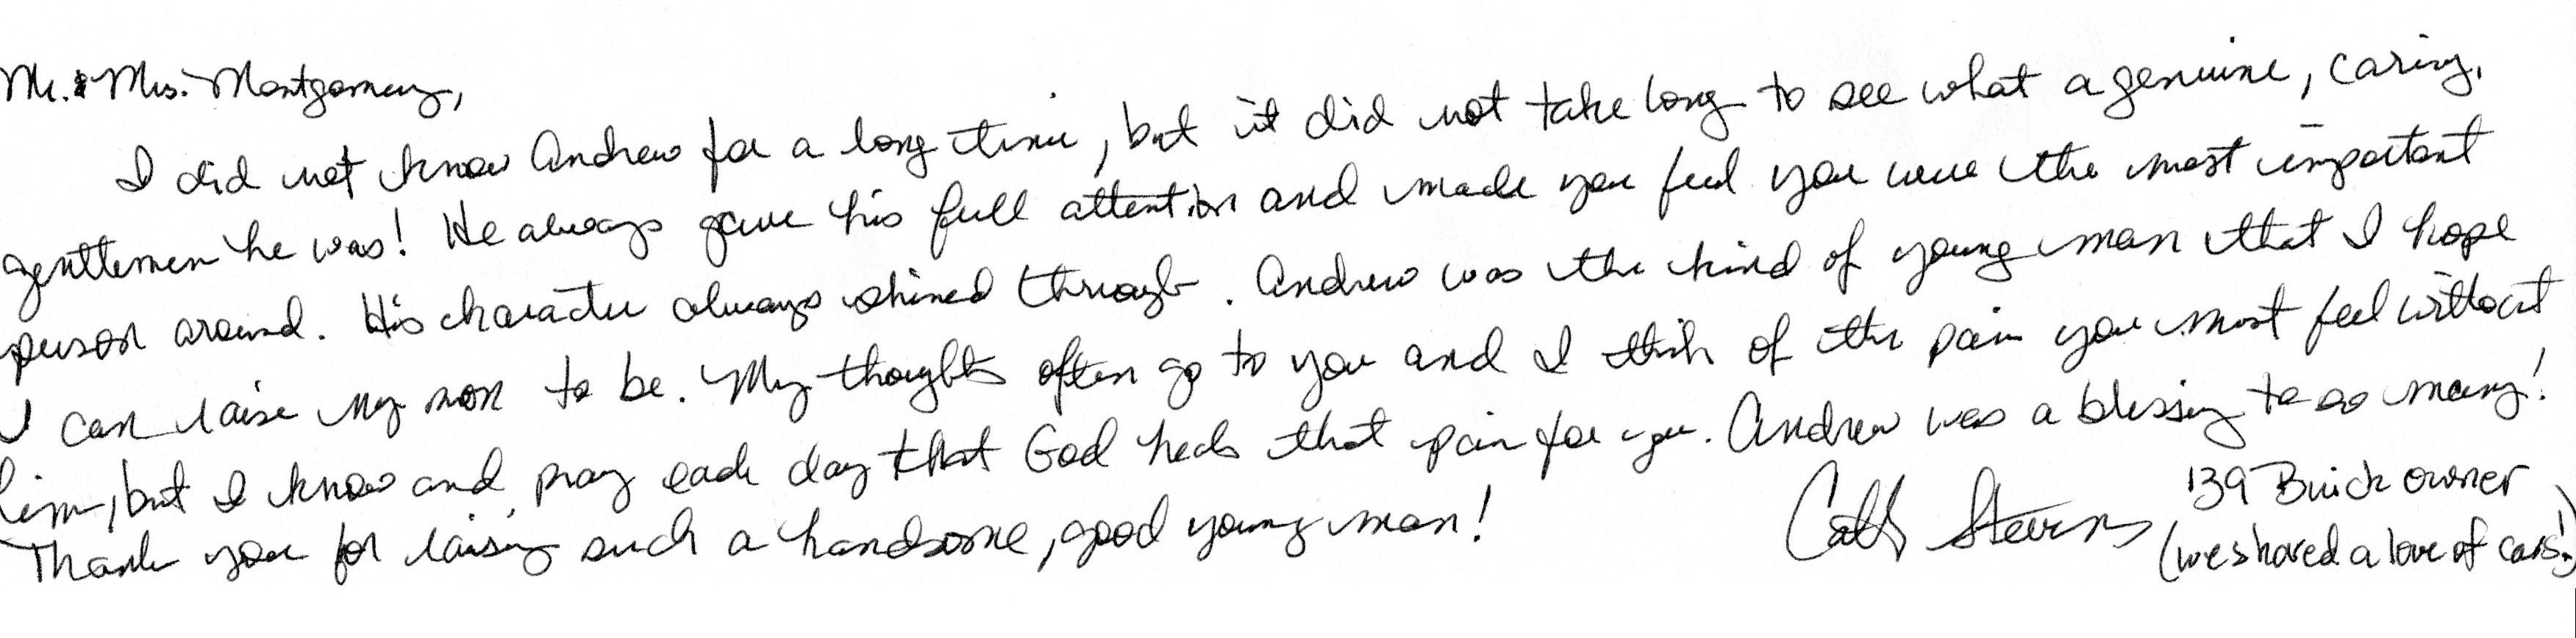 Mr. & Mrs. Montgomery,
I did not know Andrew for a long time, but it did not take long to see what a genuine, caring,
gentlemen he was! He always gave his full attention and made you feel you were the most important
person around. His character always shined through. Andrew was the kind of young man that I hope
I can raise my son to be. My thoughts often go to you and I think of the pain you must feel without
him, but I know and pray each day that God heals that pain for you. Andrew was a blessing to so many!
Thank you for raising such a handsome, good young man!
Stevens '39 Buick owner
(we shared a love of cars!)